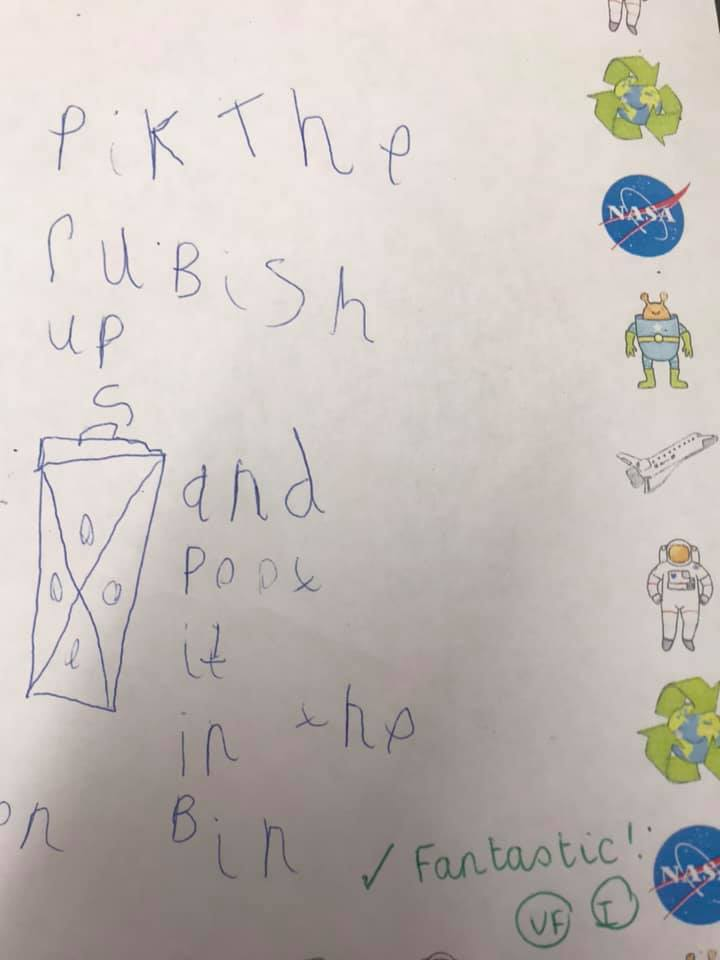 Pik The
ruBiSh
up
and
poot
it
in the
Bin
on
✓ Fantastic!
VF I
NASA
NAS